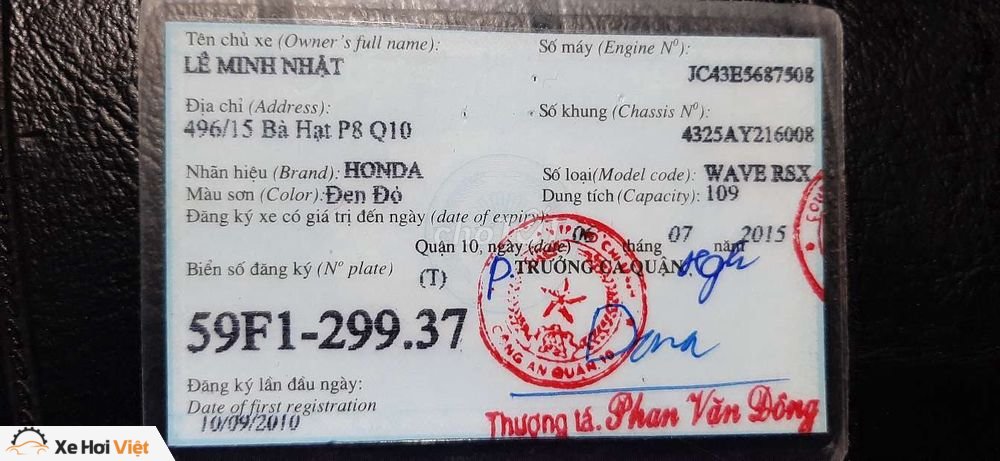 Tên chủ xe (Owner's full name):
LÊ MINH NHẬT
Số máy (Engine Nº):
JC43E5687508
Địa chỉ (Address):
496/15 Bà Hạt P8 Q10
Số khung (Chassis Nº):
4325AY216008
Nhãn hiệu (Brand): HONDA
Số loại(Model code): WAVE RSX
Màu sơn (Color): Đen Đỏ
Dung tích (Capacity): 109
Đăng ký xe có giá trị đến ngày (date of expiry):
Quận 10, ngày (date) 06 tháng 07 năm 2015
Biển số đăng ký (Nº plate) (T)
P. TRƯỞNG CA QUẬN
59F1-299.37
CÔNG AN QUẬN 10
Đăng ký lần đầu ngày:
Date of first registration
10/09/2010
Thượng tá. Phan Văn Đông
Xe Hơi Việt